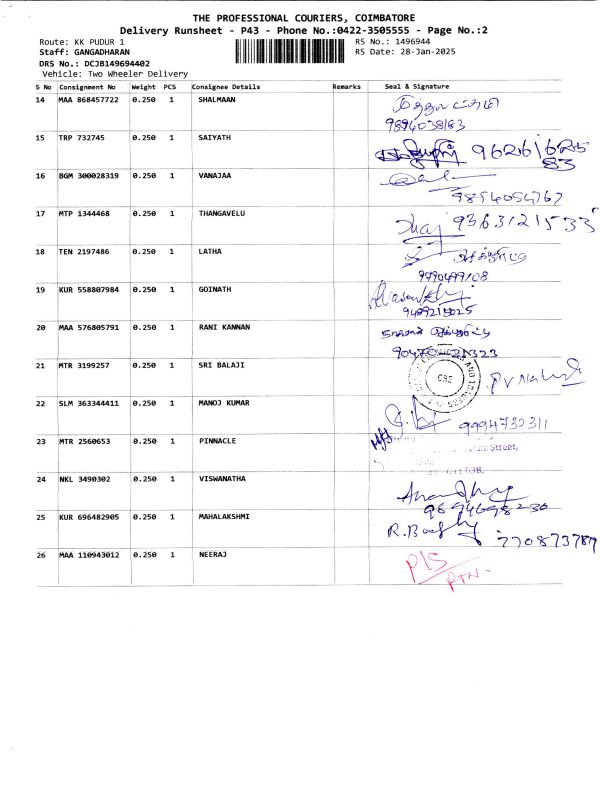 THE PROFESSIONAL COURIERS, COIMBATORE
Delivery Runsheet - P43 - Phone No.:0422-3505555 - Page No.:2
Route: KK PUDUR 1 RS No.: 1496944
Staff: GANGADHARAN RS Date: 28-Jan-2025
DRS No.: DCJB149694402
Vehicle: Two Wheeler Delivery
S No Consignment No Weight PCS Consignee Details Remarks Seal & Signature
14 MAA 868457722 0.250 1 SHALMAAN
9894038183
15 TRP 732745 0.250 1 SAIYATH
83
16 BGM 300028319 0.250 1 VANAJAA
9894054762
17 MTP 1344468 0.250 1 THANGAVELU 9363121533
18 TEN 2197486 0.250 1 LATHA
9790499108
19 KUR 558807984 0.250 1 GOINATH
20 MAA 576805791 0.250 1 RANI KANNAN
21 MTR 3199257 0.250 1 SRI BALAJI CBE
22 SLM 363344411 0.250 1 MANOJ KUMAR 9994732311
23 MTR 2560653 0.250 1 PINNACLE Street,
24 NKL 3490302 0.250 1 VISWANATHA
25 KUR 696482905 0.250 1 MAHALAKSHMI
26 MAA 110943012 0.250 1 NEERAJ P/S
RTN-